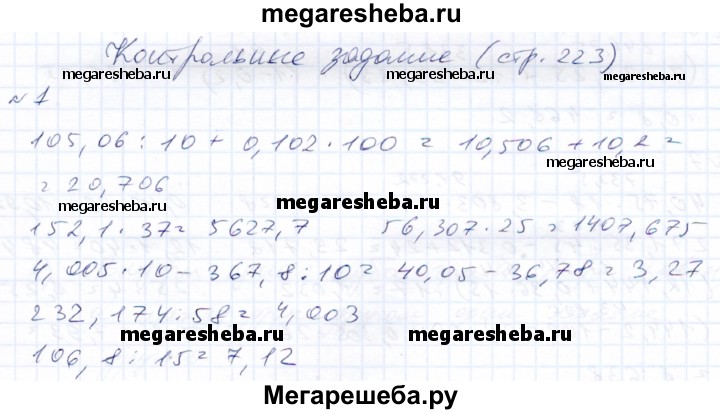 megaresheba.ru
Контрольные задание (стр. 223)
megaresheba.ru megaresheba.ru megaresheba.ru
№ 1
105,06 : 10 + 0,102 · 100 = 10,506 + 10,2 =
megaresheba.ru
= 20,706
megaresheba.ru megaresheba.ru megaresheba.ru
152,1 · 37 = 5627,7 56,307 · 25 = 1407,675
4,005 · 10 - 367,8 : 10 = 40,05 - 36,78 = 3,27
232,174 : 58 = 4,003
megaresheba.ru megaresheba.ru megaresheba.ru
106,8 : 15 = 7,12
Мегарешеба.ру